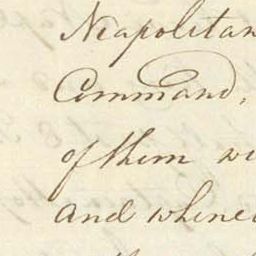 Neapolitan
Command,
of them wi
and whene